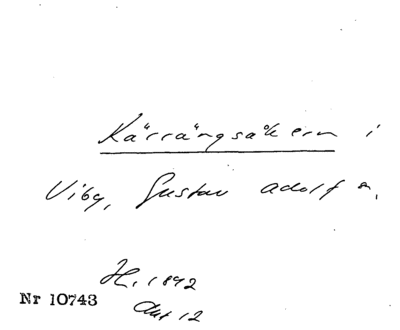 Kärrängsåkern i
Viby, Gustav Adolf s.
H. 1892
Akt 12
Nr 10743